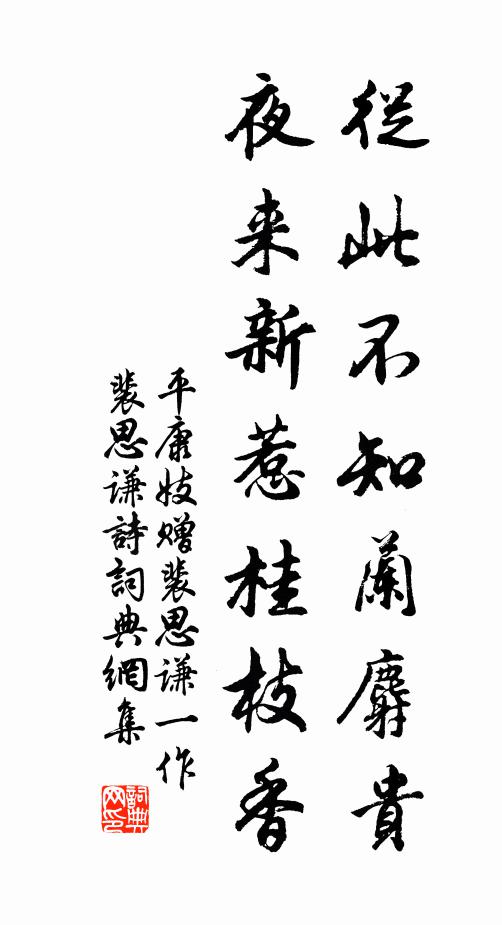 從此不知蘭麝貴
夜来新惹桂枝香
平康妓贈裴思谦一作
裴思谦詩詞典網集
詞典网印